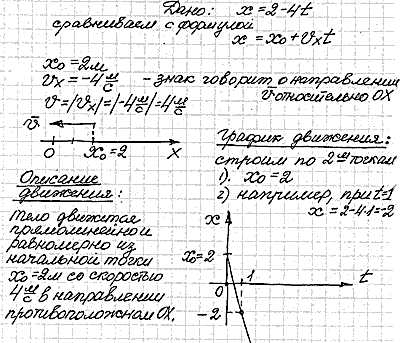 Дано: x = 2-4t
сравниваем с формулой
x = x₀ + vₓt
x₀ = 2м
vₓ = -4 м/с - знак говорит о направлении
v̄ относительно OX
v = |vₓ| = |-4 м/с| = 4 м/с
v̄
0 x₀ = 2 X
Описание
движения:
тело движется
прямолинейно и
равномерно из
начальной точки
x₀ = 2м со скоростью
4 м/с в направлении
противоположном OX.
График движения:
строим по 2ᵐ точкам
1). x₀ = 2
2) например, при t=1
x = 2-4·1=-2
x
x₀ = 2
1
t
0
-2